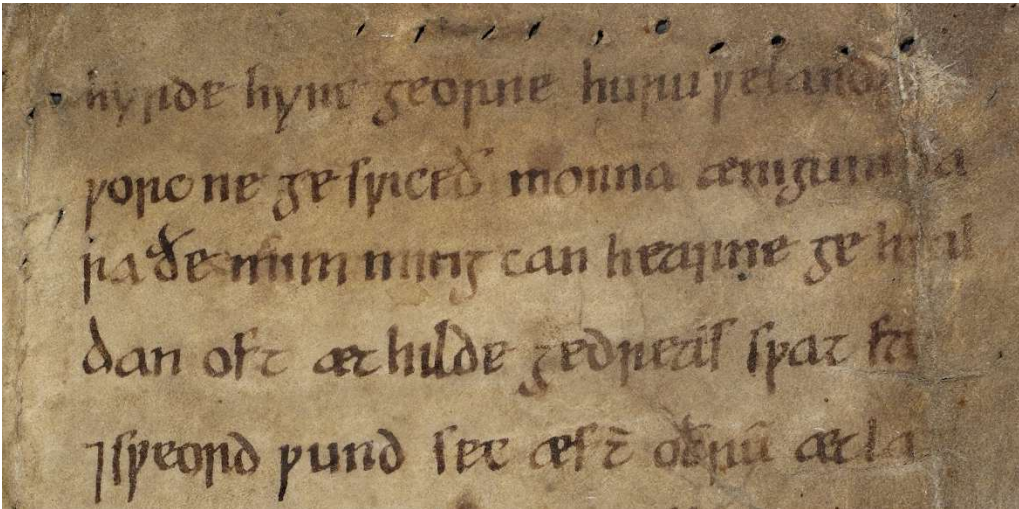 hyrde hyne georne huru ƿelande
ƿorc ne geswiceð monna ænigum ða
ra ðe mimming can hearne ge heal
dan oft æt hilde gedreas sƿat fa
⁊ sƿeord ƿund sec æft̄ oðrū æt la